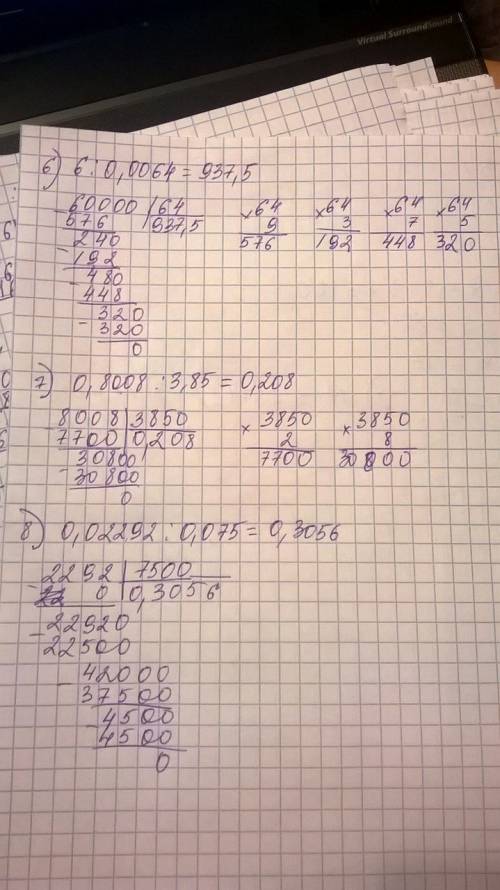 Virtual SurroundSound
6) 6 : 0,0064 = 937,5
60000 | 64
576 | 937,5
- 240
192
- 480
448
- 320
320
0
× 64
9
576
× 64
3
192
× 64
7
448
× 64
5
320
7) 0,8008 : 3,85 = 0,208
- 8008 | 3850
7700 | 0,208
- 30800
30800
0
× 3850
2
7700
× 3850
8
30800
8) 0,02292 : 0,075 = 0,3056
- 2292 | 7500
0 | 0,3056
- 22920
22500
- 42000
37500
- 4500
4500
0